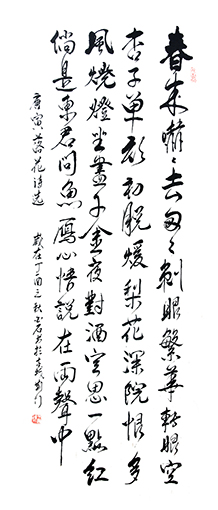 春来赫赫去匆匆刺眼繁华转眼空
杏子单衫初脱暖梨花深院恨多
风烧灯坐尽千金夜对酒空思一点红
倘是东君问鱼雁心悟说在雨声中
庚寅落花诗选
岁在丁酉之秋